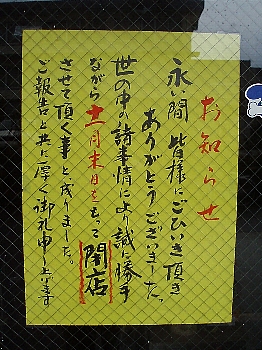 お知らせ
永い間 皆様にごひいき頂き
ありがとうございました。
世の中の諸事情により誠に勝手
ながら十一月末日をもって閉店
させて頂く事と成りました。
ご報告と共に厚く御礼申し上げます